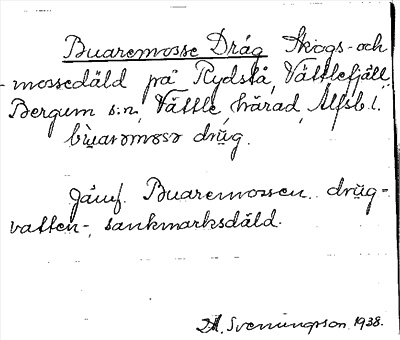 Buaremosse Dråg Skogs- och
-mossedäld på Rydstå, Vättlefjäll,
Bergum s:n, Vättle härad, Älfsb. l.
bùarəmosə drūg.
Jämf. Buaremossen. drūg-
vatten-, sankmarksdäld.
Sveningsson 1938.